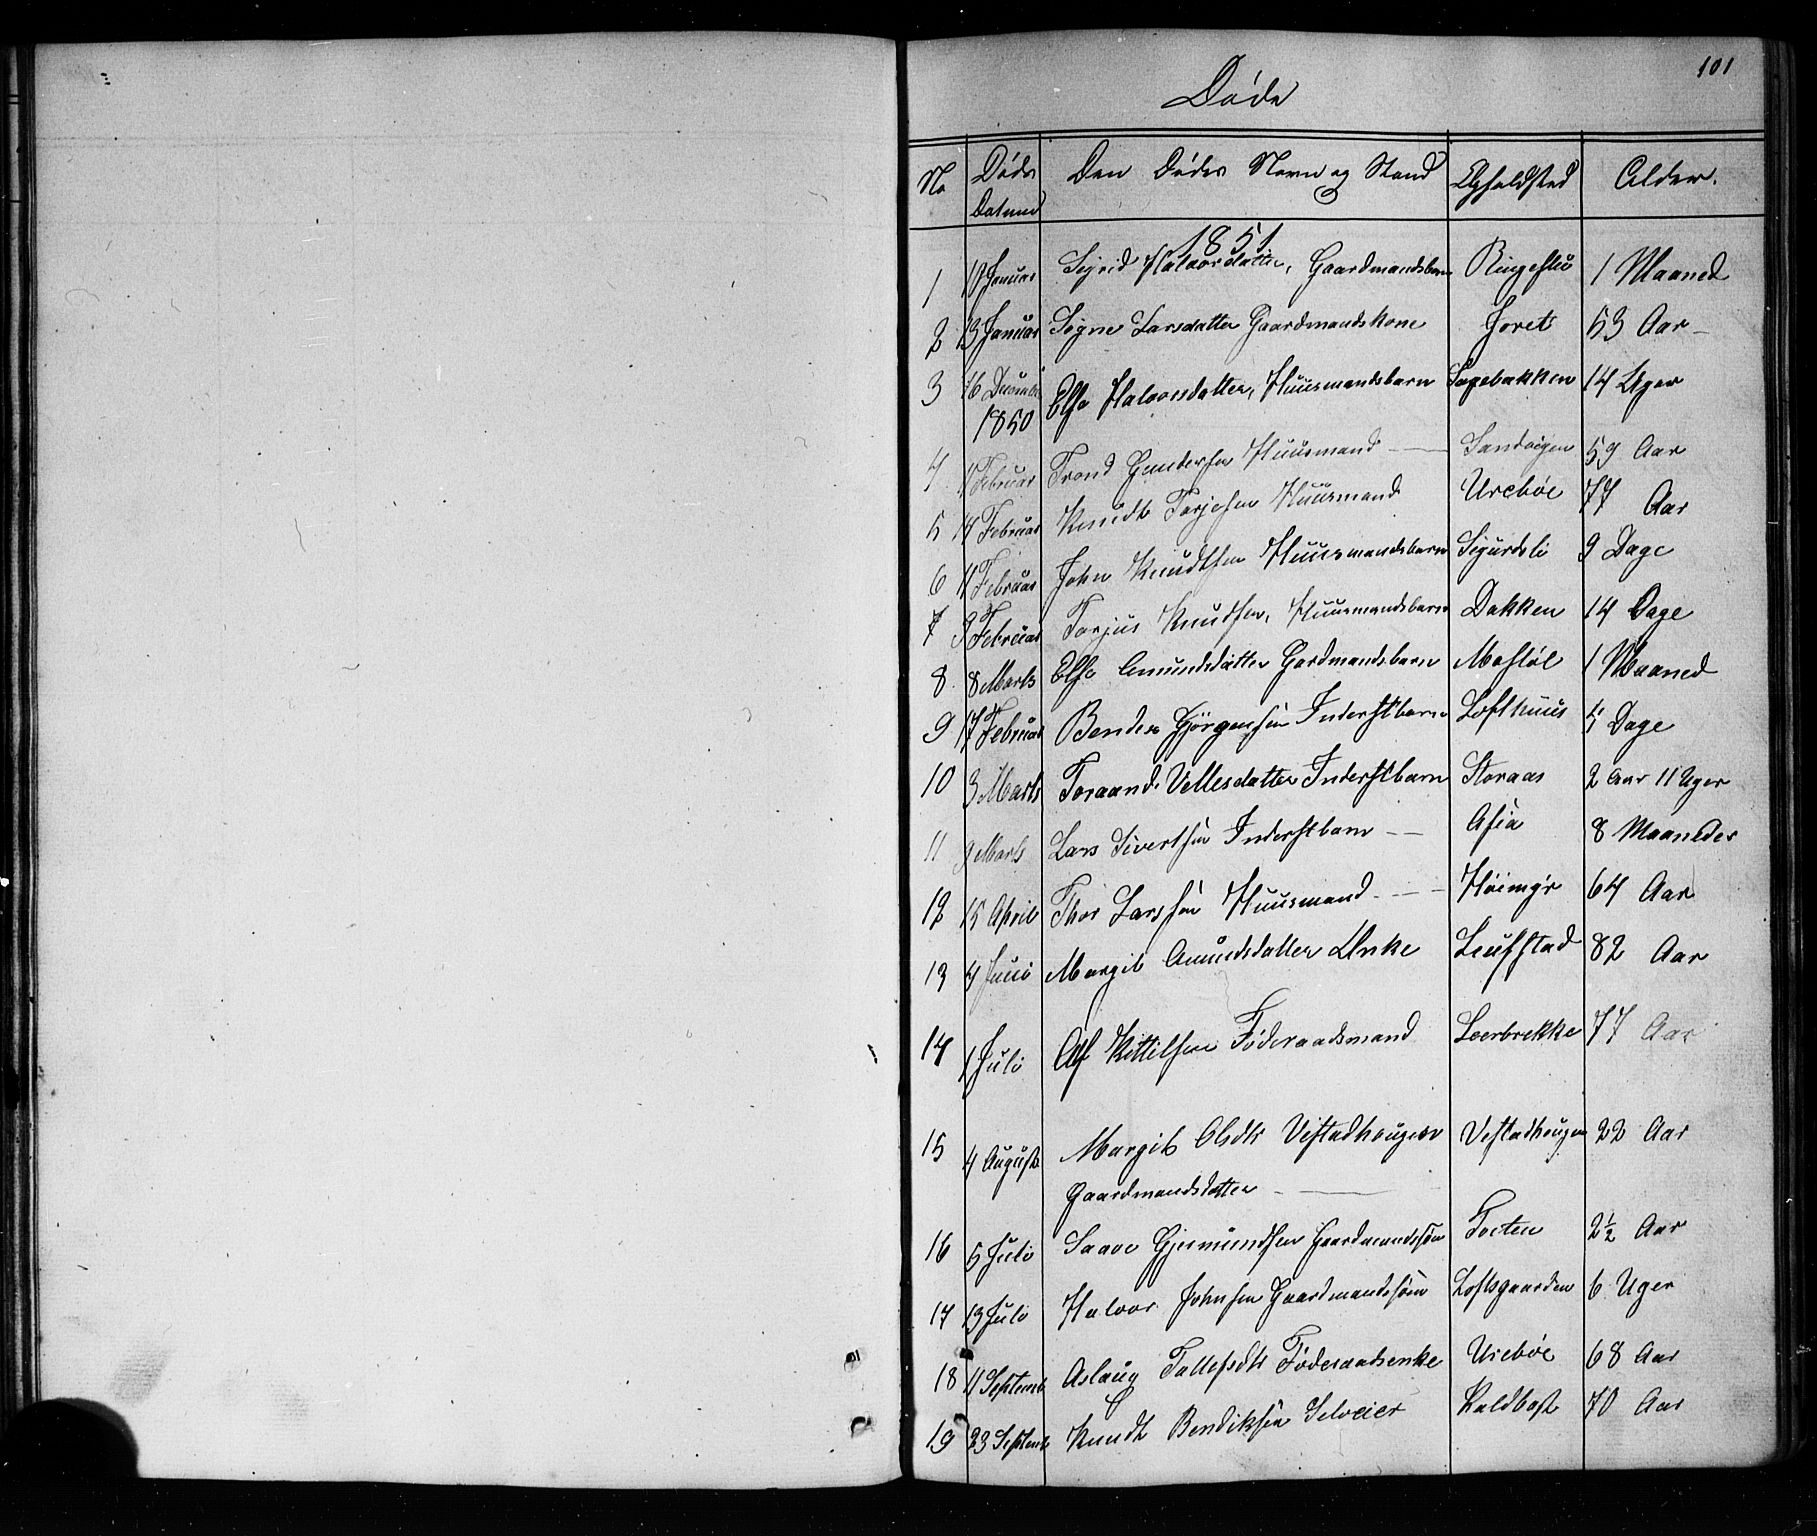 101
Døde
No Døds Datum Den Dødes Navn og Stand Opholdsted Alder.
1851
1 Januar Sigrid Halvorsdatter, Gaardmandsbarn 1 Maaned
2 13 Januar Signe Larsdatter Gaardmandskone Joret 53 Aar
3 16 Decembr 1850 Halvorsdatter, Huusmandsbarn Sagebakken 14 Uger
4 Februar Trond Gundersen Huusmand Sandvigen 59 Aar
5 14 Februar Knudt Tarjesen Huusmand Urebøe 77 Aar
6 11 Februar John Knudtsen Huusmandsbarn Sigurdsli 9 Dage
7 9 Februar Torjus Knudsen, Huusmandsbarn Bakken 14 Dage
8 8 Marts Amundsdatter Gardmandsbarn 1 Maaned
9 17 Februar Jørgensen Inderstbarn Lofthuus 5 Dage
10 3 Marts Toraand Vellesdatter Inderstbarn Storaas 2 Aar 11 Uger
11 9 Marts Lars Sivertsen Inderstbarn Asia 8 Maaneder
12 15 April Thor Larssen Huusmand Høimyr 64 Aar
13 4 Juni Margit Amundsdatter Enke 82 Aar
14 1 Juli Alf Kittilsen Føderaadsmand Leerbrekke 77 Aar
15 4 August Margit Olsdtr Vestadhougen Vestadhougen 22 Aar
Gaardmandsdatter
16 5 Juli Saave Gjermundsen Gaardmandssøn Toeten 2½ Aar
17 13 Juli Halvor Johnsen Gaardmandssøn Loftsgaarden 6 Uger
18 11 Septemb Aslaug Tallefsdtr Føderaadsenke Urebøe 68 Aar
19 23 Septemb Knudt Bendiksen Selveier Kaldbast 70 Aar